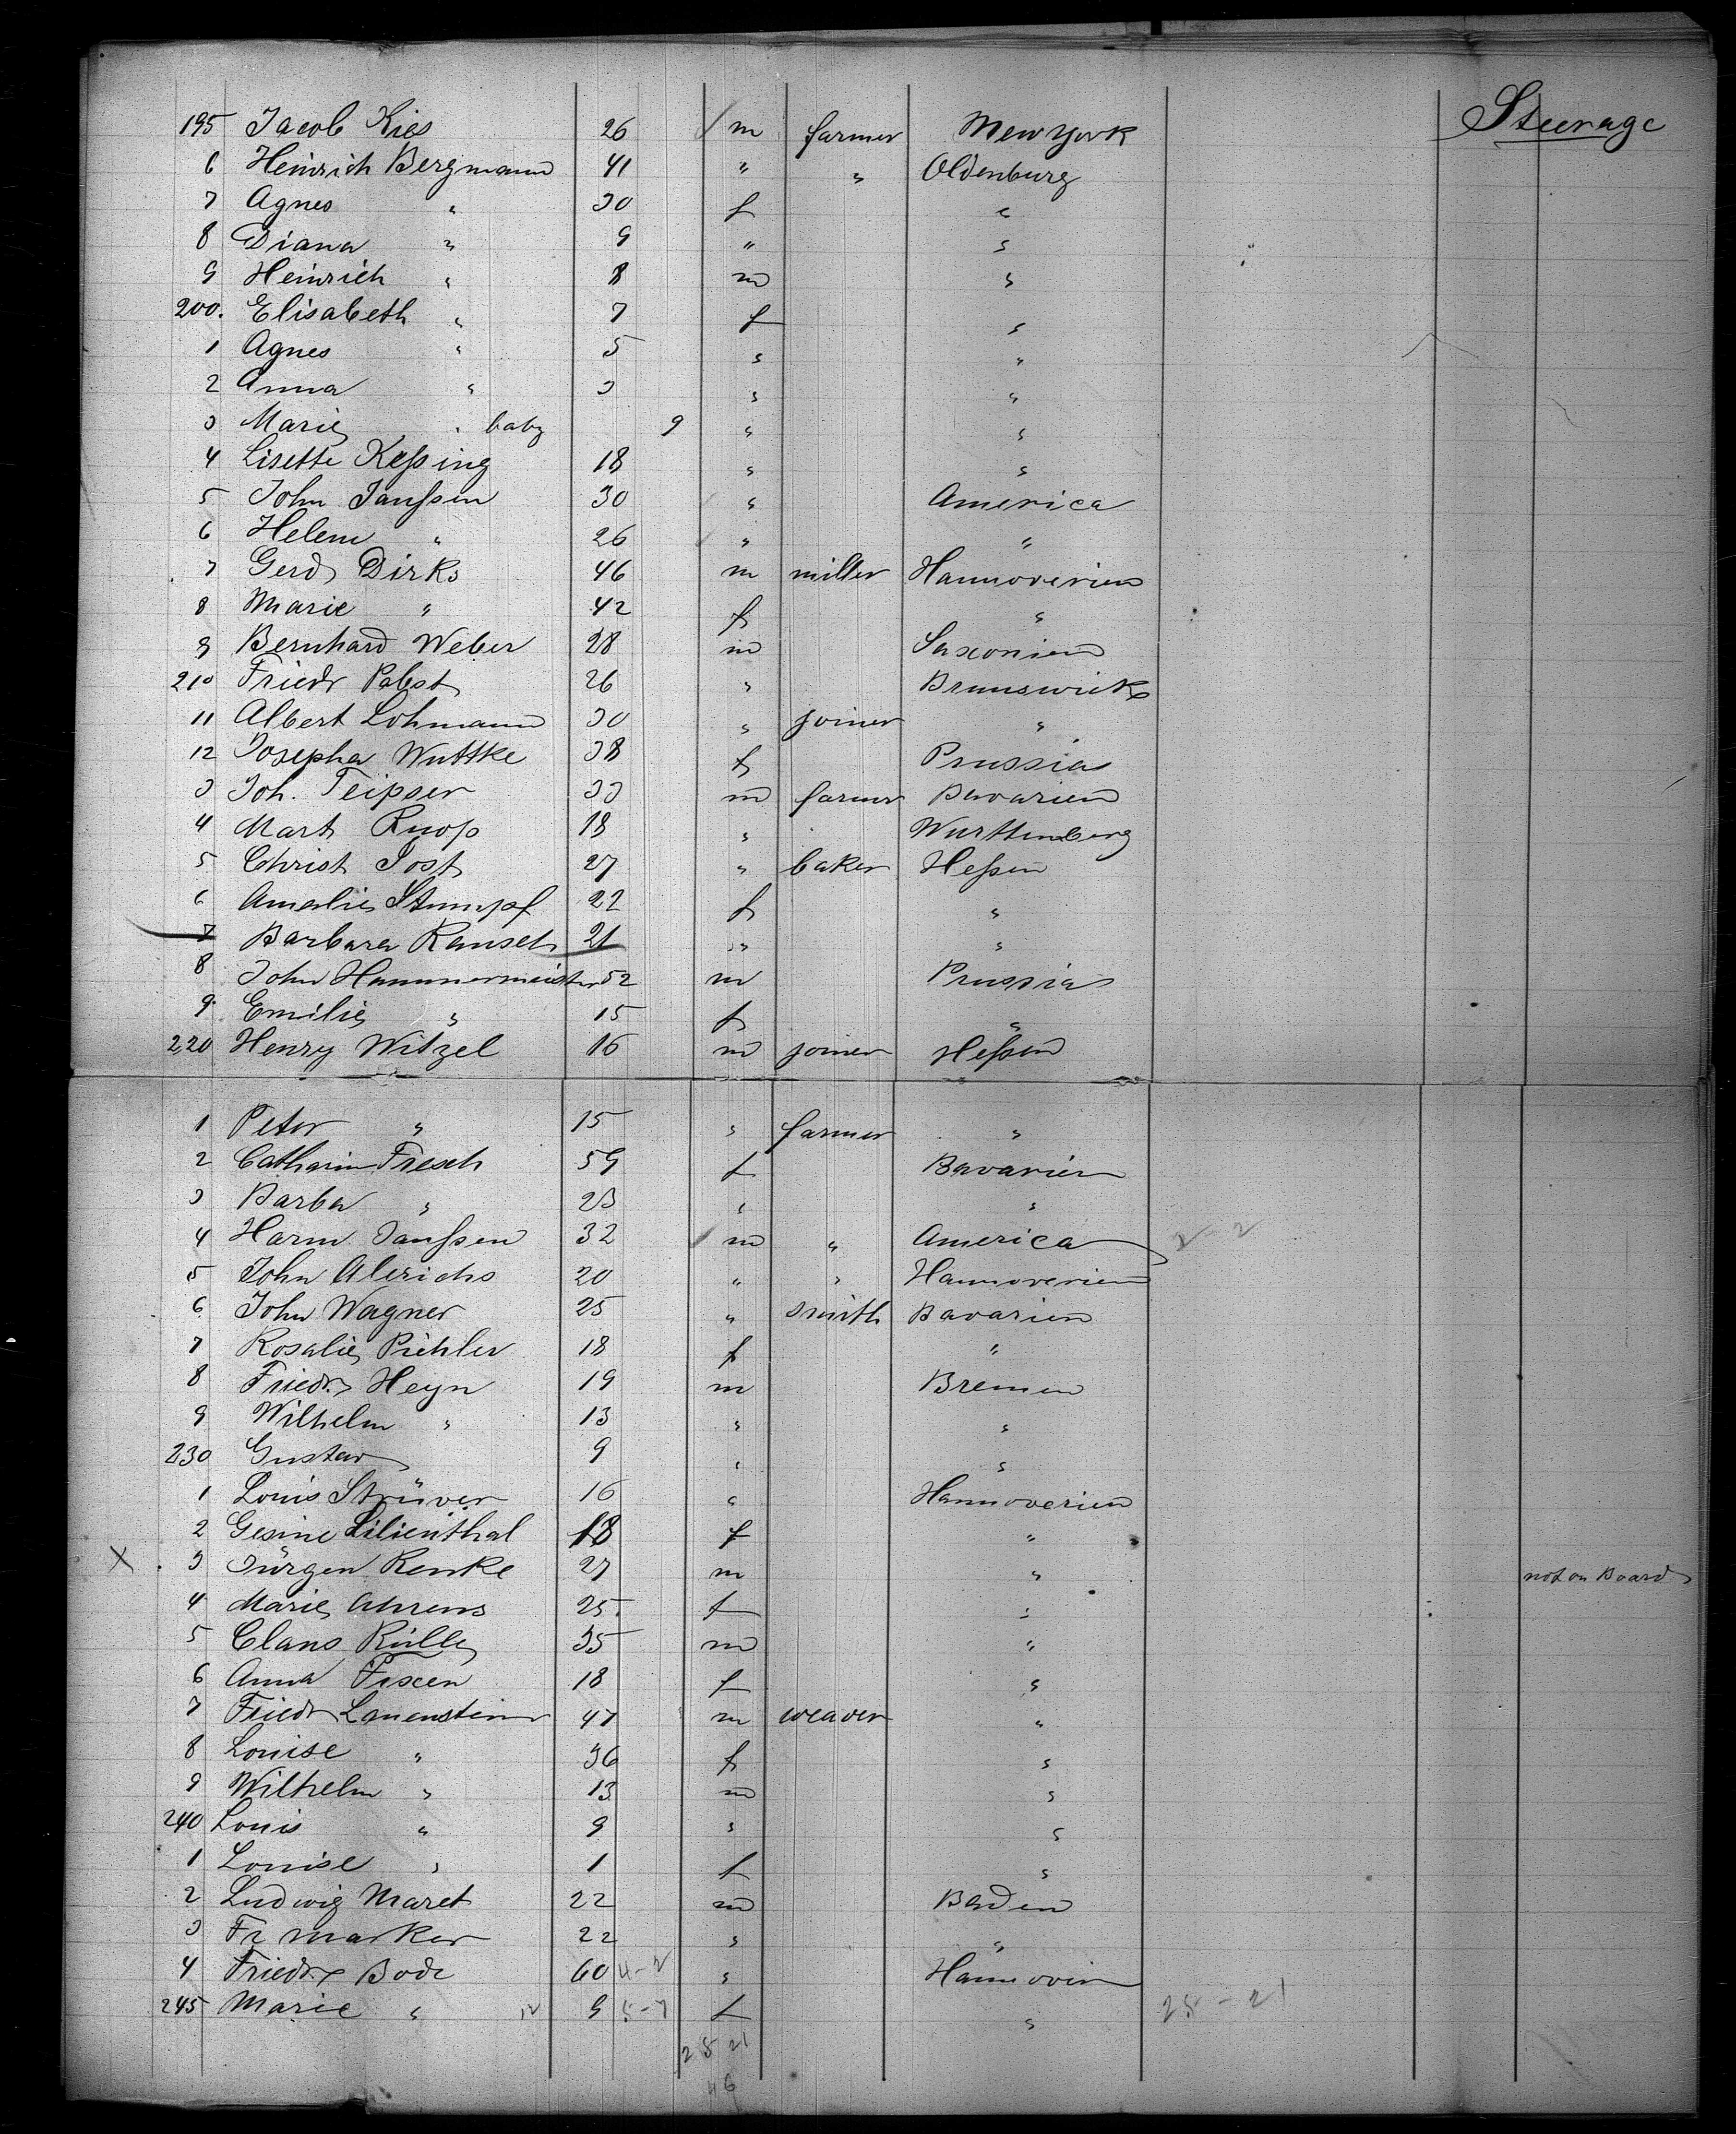 Steerage
195 Jacob Kies 26 m farmer New York
6 Heinrich Bergmann 41 " " Oldenburg
7 Agnes " 30 f "
8 Diana " 9 " "
9 Heinrich " 8 m "
200. Elisabeth " 7 f "
1 Agnes " 5 " "
2 Anna " 3 " "
3 Marie " baby 9 " "
4 Lisette Keßing 18 " "
5 John Janßen 30 " America
6 Helene " 26 " "
7 Gerd Dirks 46 m miller Hannoverien
8 Marie " 42 f "
9 Bernhard Weber 28 m Saxonien
210 Friedr Pabst 26 " Brunswick
11 Albert Lohmann 30 " joiner "
12 Josepha Wuttke 38 f Prussia
3 Joh. Teipser 33 m farmer Bavarien
4 Mart Knoß 18 " Wurttemberg
5 Christ Jost 27 " baker Heßen
6 Amalie Stumpf 22 f "
7 Barbara Rausch 21 " "
8 John Hammermeister 52 m Prussia
9 Emilie " 15 f "
220 Henry Witzel 16 m joiner Heßen
1 Peter " 15 " farmer "
2 Catharine Fresch 59 f Bavarien
3 Barba " 23 " "
4 Harm Janßen 32 m " America 2-2
5 John Alerichs 20 " " Hannoverien
6 John Wagner 25 " smith Bavarien
7 Rosalie Pichler 18 f "
8 Friedr. Heyn 19 m Bremen
9 Wilhelm " 13 " "
230 Gustav 9 " "
1 Louis Strüver 16 " Hannoverien
2 Gesine Lilienthal 18 f "
X 3 Jürgen Renke 27 m " not on Board
4 Marie Ahrens 25. f "
5 Claus Rülle 35 m "
6 Anna Fixen 18 f "
7 Friedr Lauenstein 47 m weaver "
8 Louise " 36 f "
9 Wilhelm " 13 m "
240 Louis " 9 " "
1 Louise " 1 f "
2 Ludwig Maret 22 m Baden
3 Fr Marker 22 " "
4 Friedr. Bode 60 4-2 " Hannover
245 Marie " 12 9 5-7 f " 25-21
25 21
46